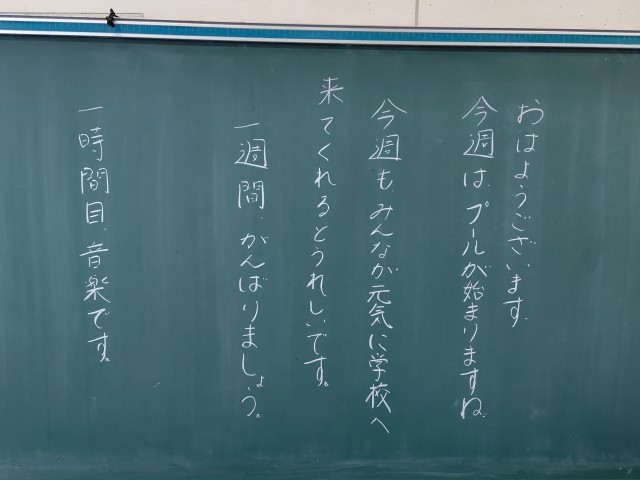 おはようございます。
今週は、プールが始まりますね。
今週も、みんなが元気に学校へ
来てくれるとうれしいです。
一週間、がんばりましょう。
一時間目、音楽です。